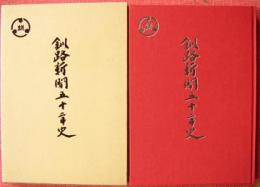 釧路新聞五十年史
釧路新聞五十年史